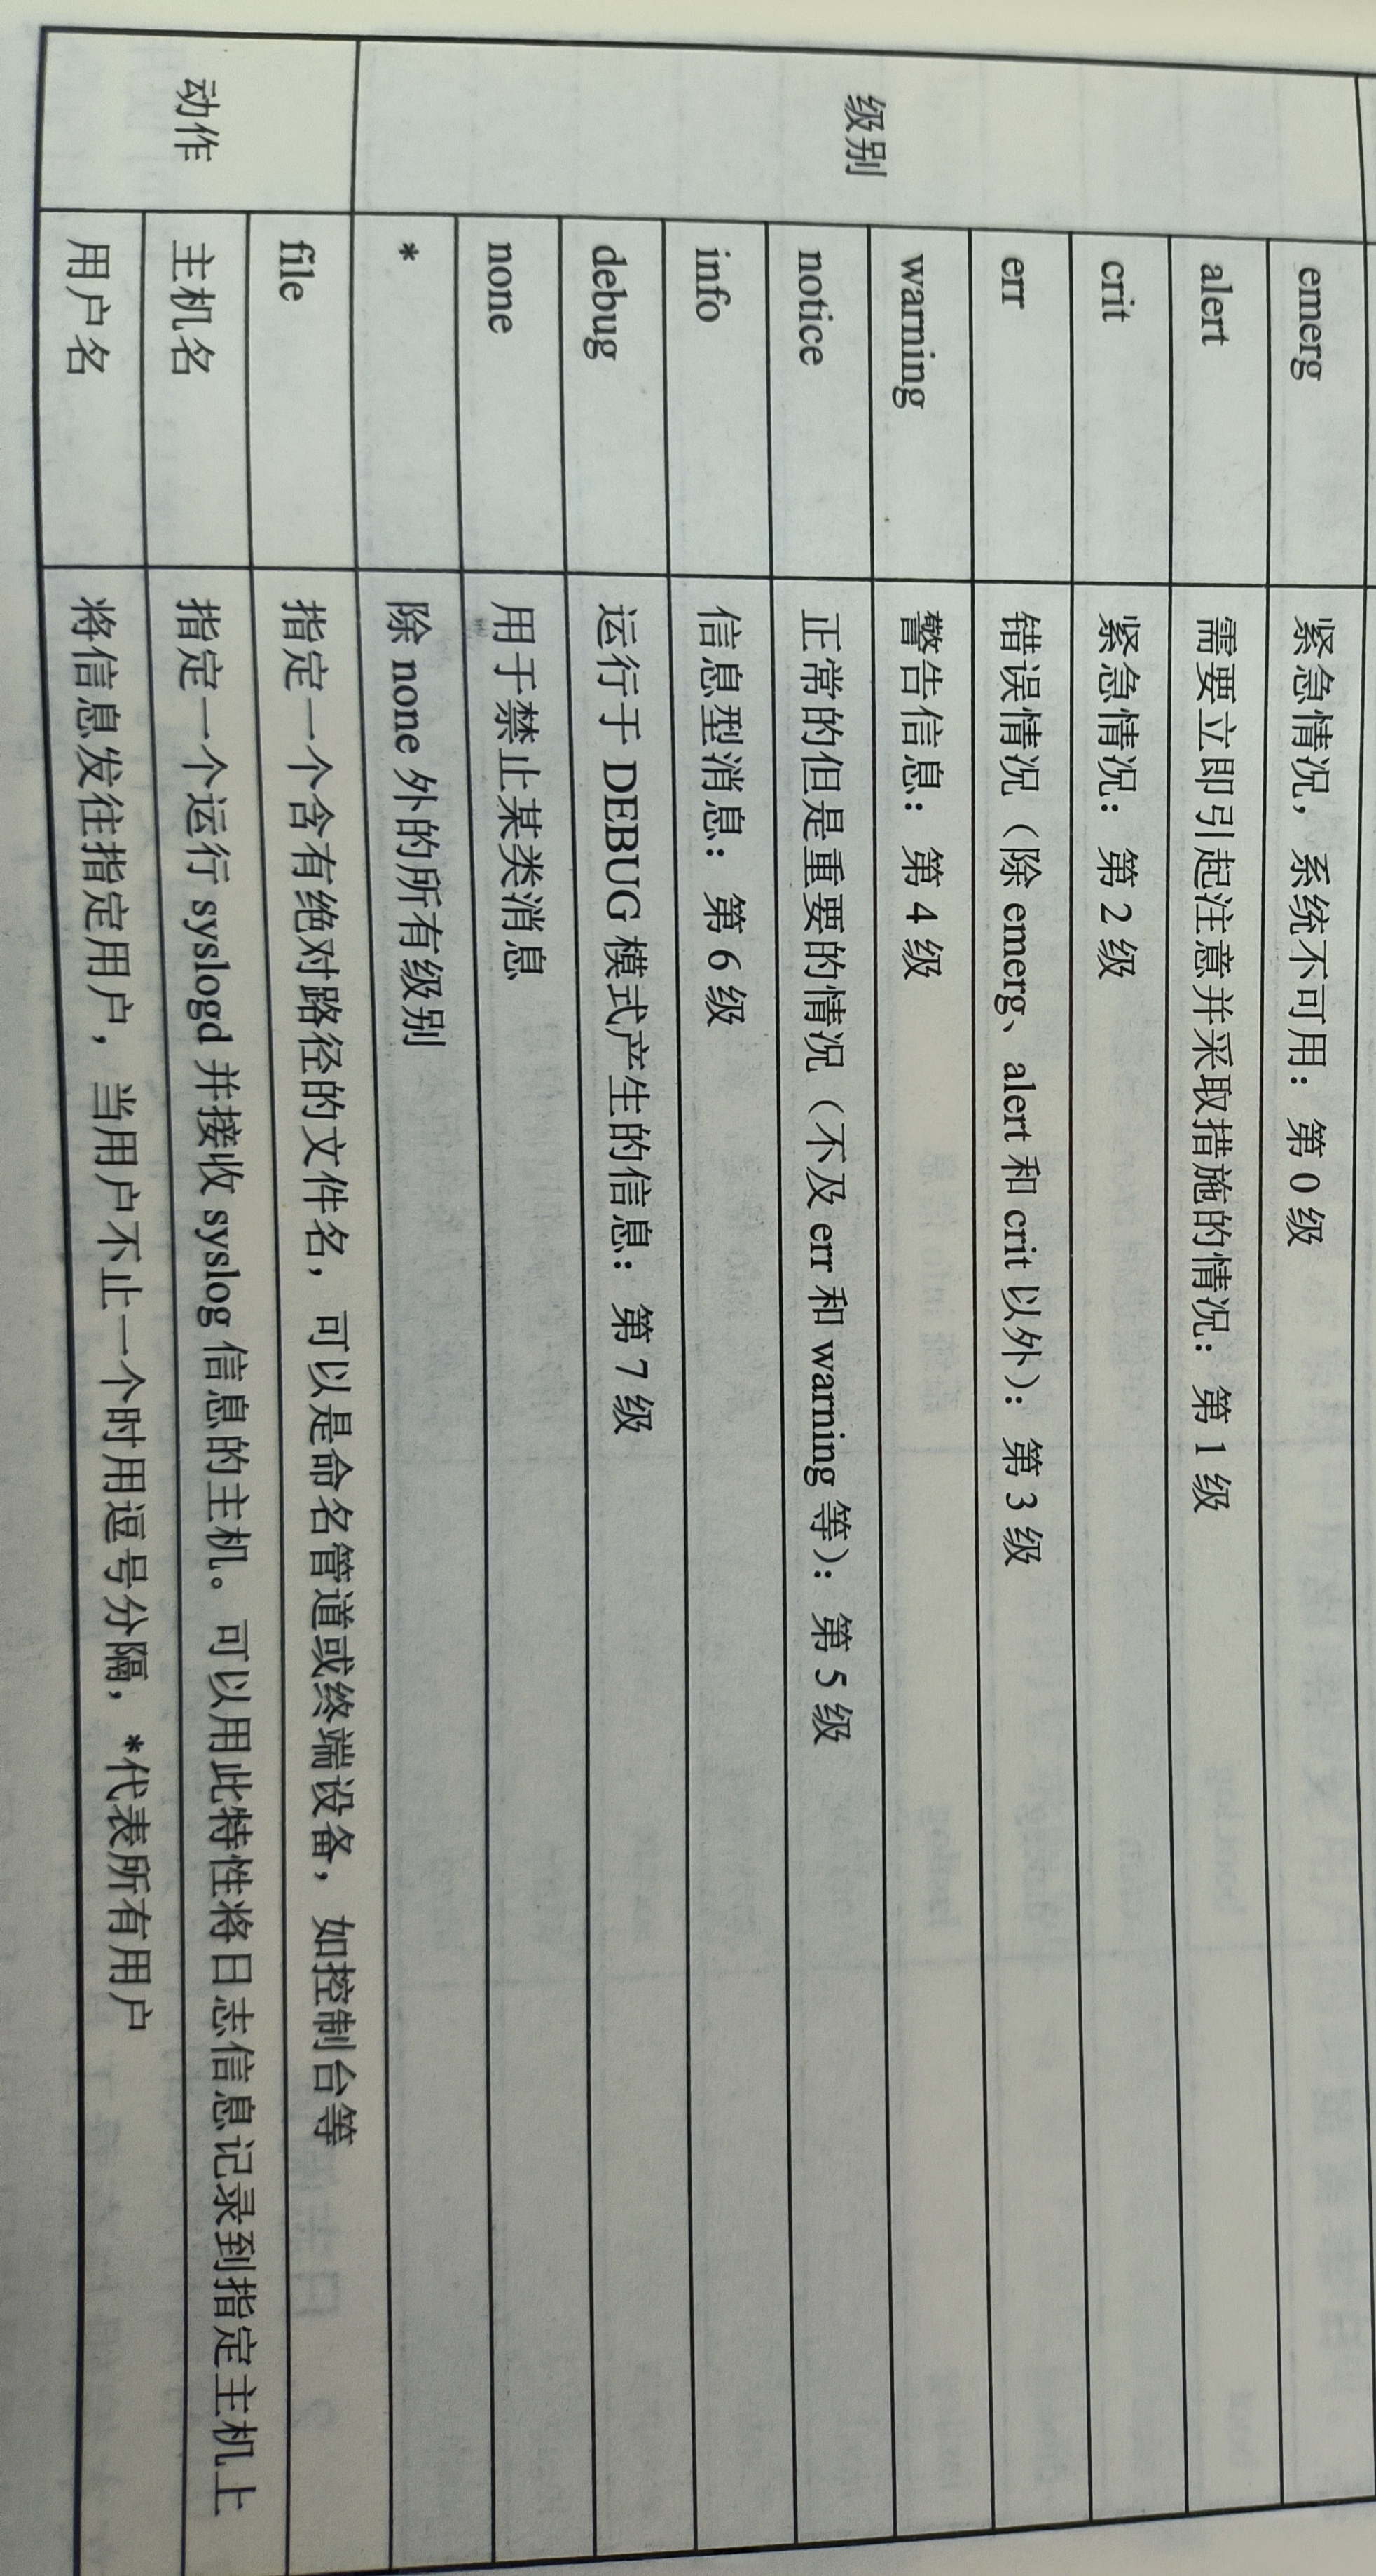 级别
emerg 紧急情况，系统不可用：第 0 级
alert 需要立即引起注意并采取措施的情况：第 1 级
crit 紧急情况：第 2 级
err 错误情况（除 emerg、alert 和 crit 以外）：第 3 级
warning 警告信息：第 4 级
notice 正常的但是重要的情况（不及 err 和 warning 等）：第 5 级
info 信息型消息：第 6 级
debug 运行于 DEBUG 模式产生的信息：第 7 级
none 用于禁止某类消息
* 除 none 外的所有级别
动作
file 指定一个含有绝对路径的文件名，可以是命名管道或终端设备，如控制台等
主机名 指定一个运行 syslogd 并接收 syslog 信息的主机。可以用此特性将日志信息记录到指定主机上
用户名 将信息发往指定用户，当用户不止一个时用逗号分隔，*代表所有用户